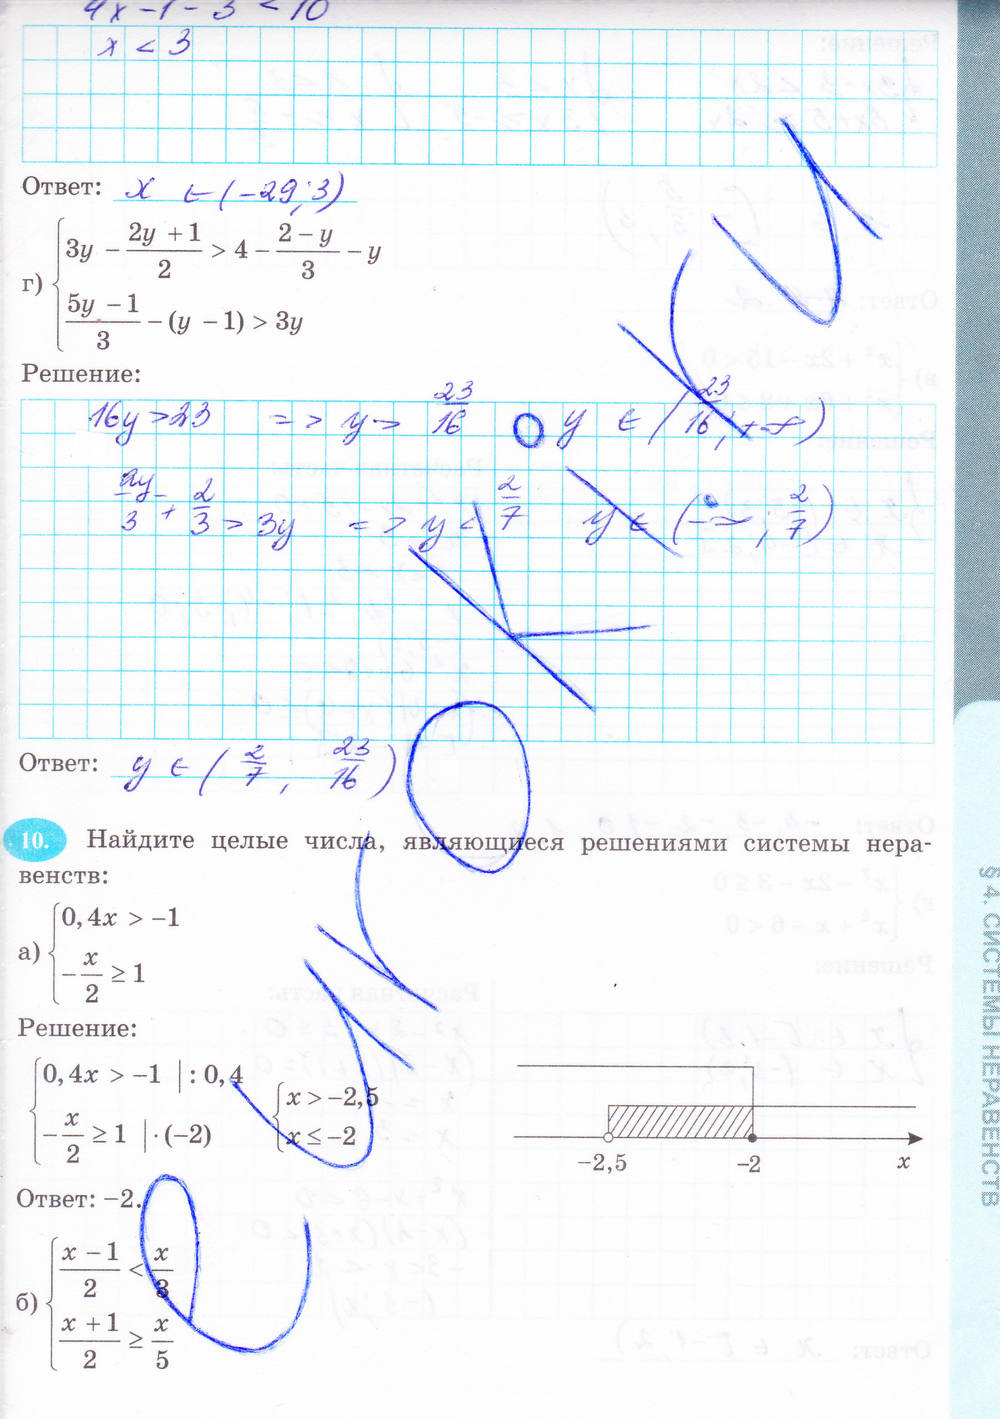 4x-1-3 < 10
x < 3
Ответ: x ∈ (-29; 3)
г) { 3y - (2y + 1)/2 > 4 - (2 - y)/3 - y
(5y - 1)/3 - (y - 1) > 3y
Решение:
16y > 23 => y > 23/16 y ∈ (23/16; +∞)
2y/3 + 2/3 > 3y => y < 2/7 y ∈ (-∞; 2/7)
Ответ: y ∈ (2/7; 23/16)
10. Найдите целые числа, являющиеся решениями системы нера-
венств:
а) { 0,4x > -1
-x/2 ≥ 1
Решение:
{ 0,4x > -1 | : 0,4 { x > -2,5
-x/2 ≥ 1 | · (-2) x ≤ -2
-2,5 -2 x
Ответ: -2.
б) { (x - 1)/2 < x/3
(x + 1)/2 ≥ x/5
§ 4. СИСТЕМЫ НЕРАВЕНСТВ